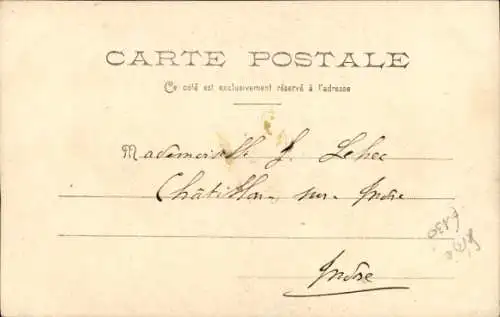 CARTE POSTALE
Ce coté est exclusivement réservé à l'adresse
Mademoiselle J. Lehec
Châtillon sur Indre
Indre